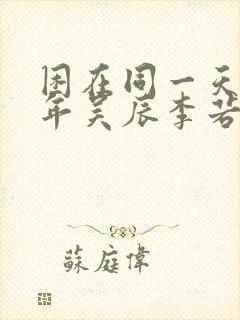 困在同一天
年吴辰李若
蘇庭偉